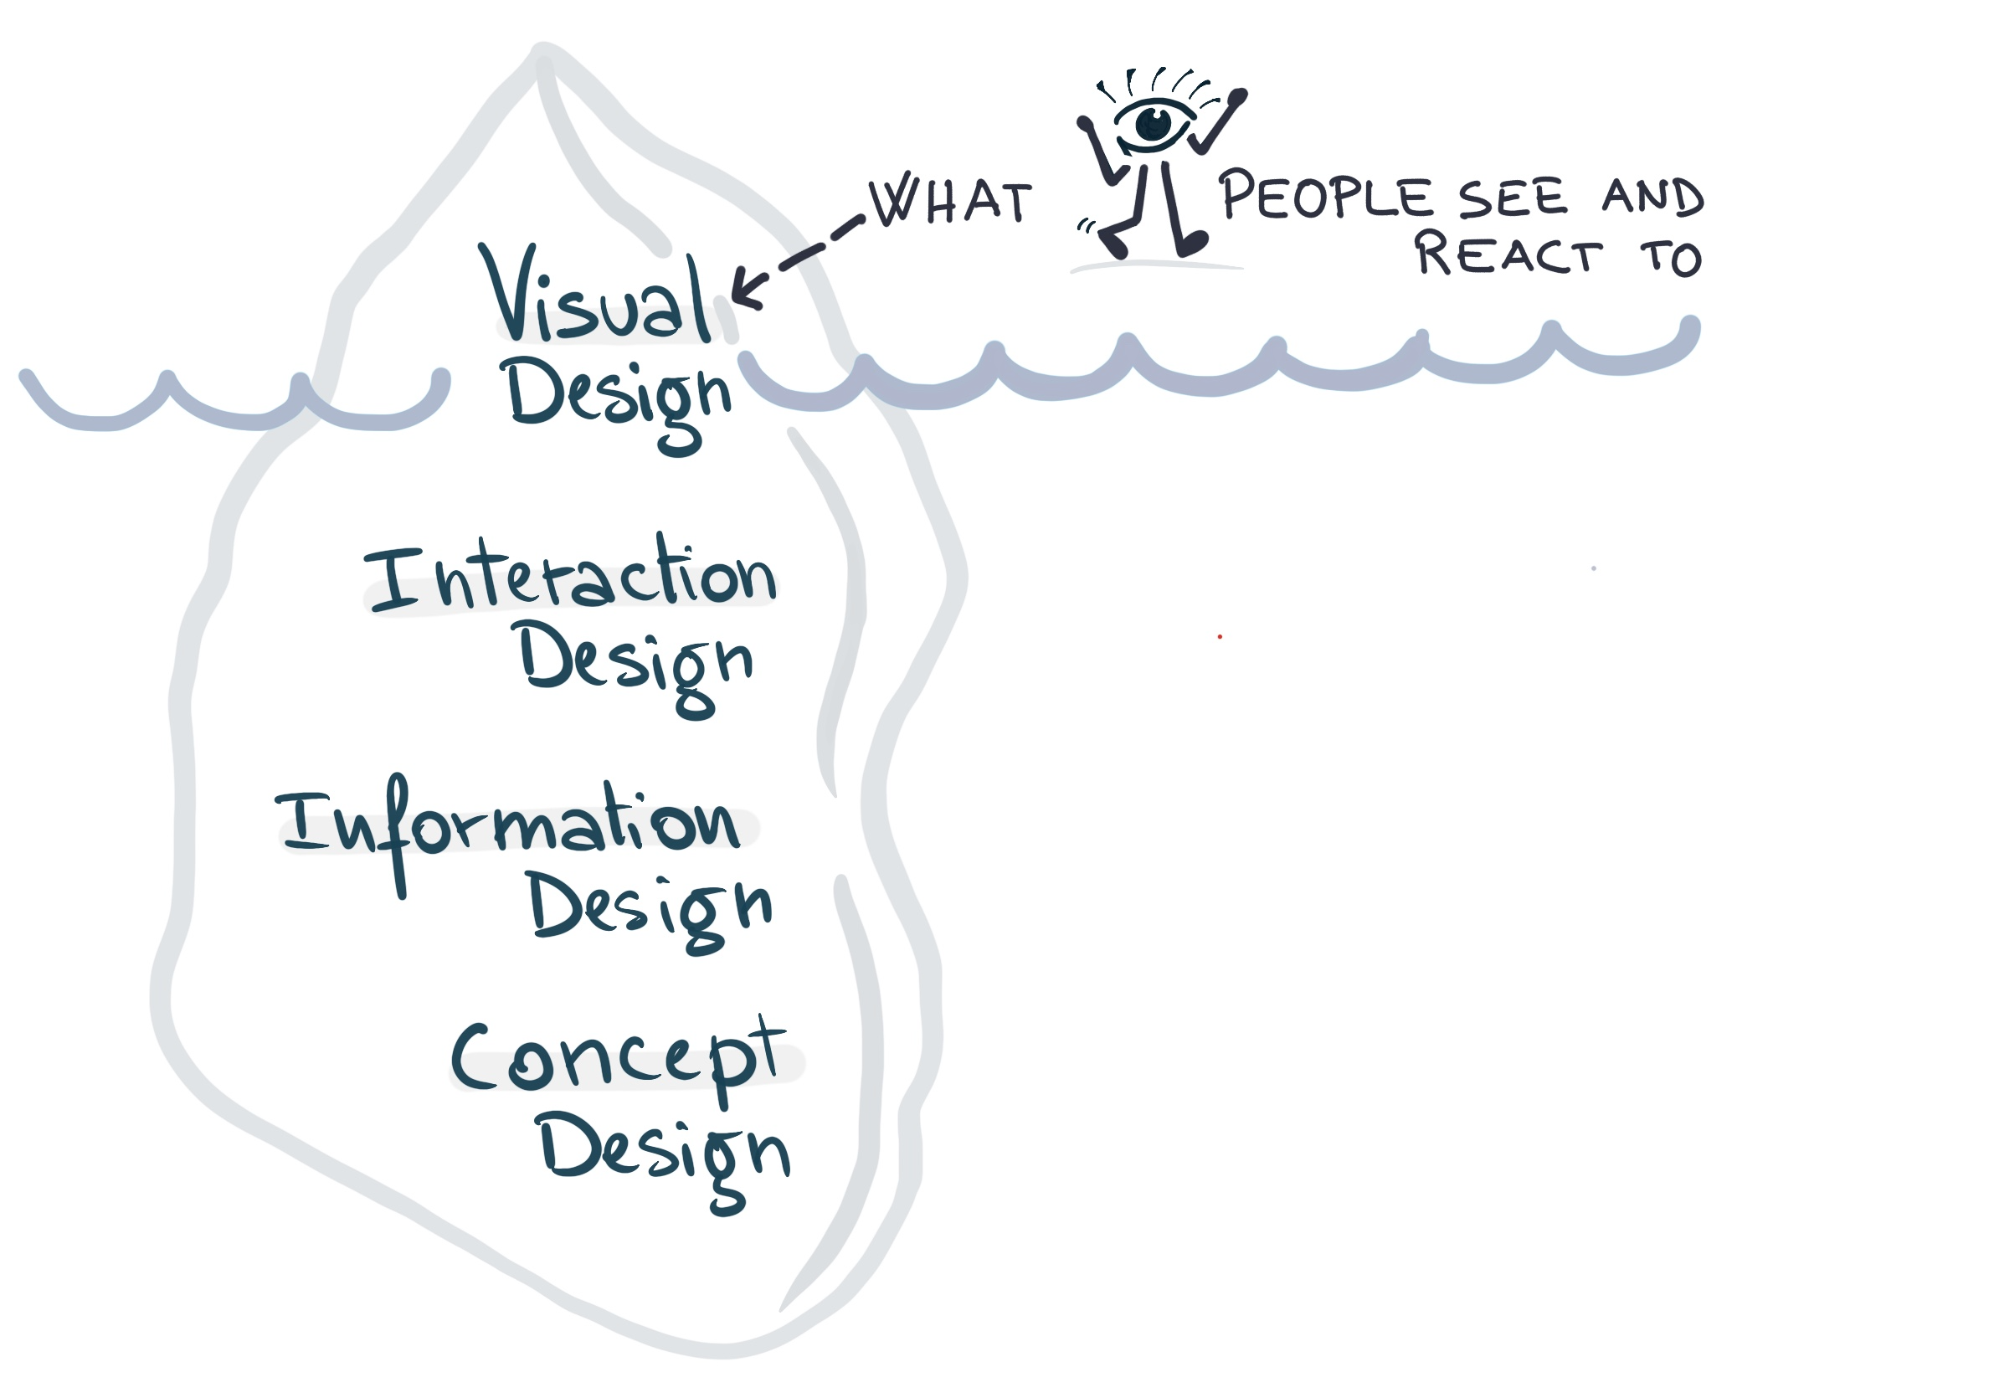 WHAT PEOPLE SEE AND
REACT TO
Visual
Design
Interaction
Design
Information
Design
Concept
Design